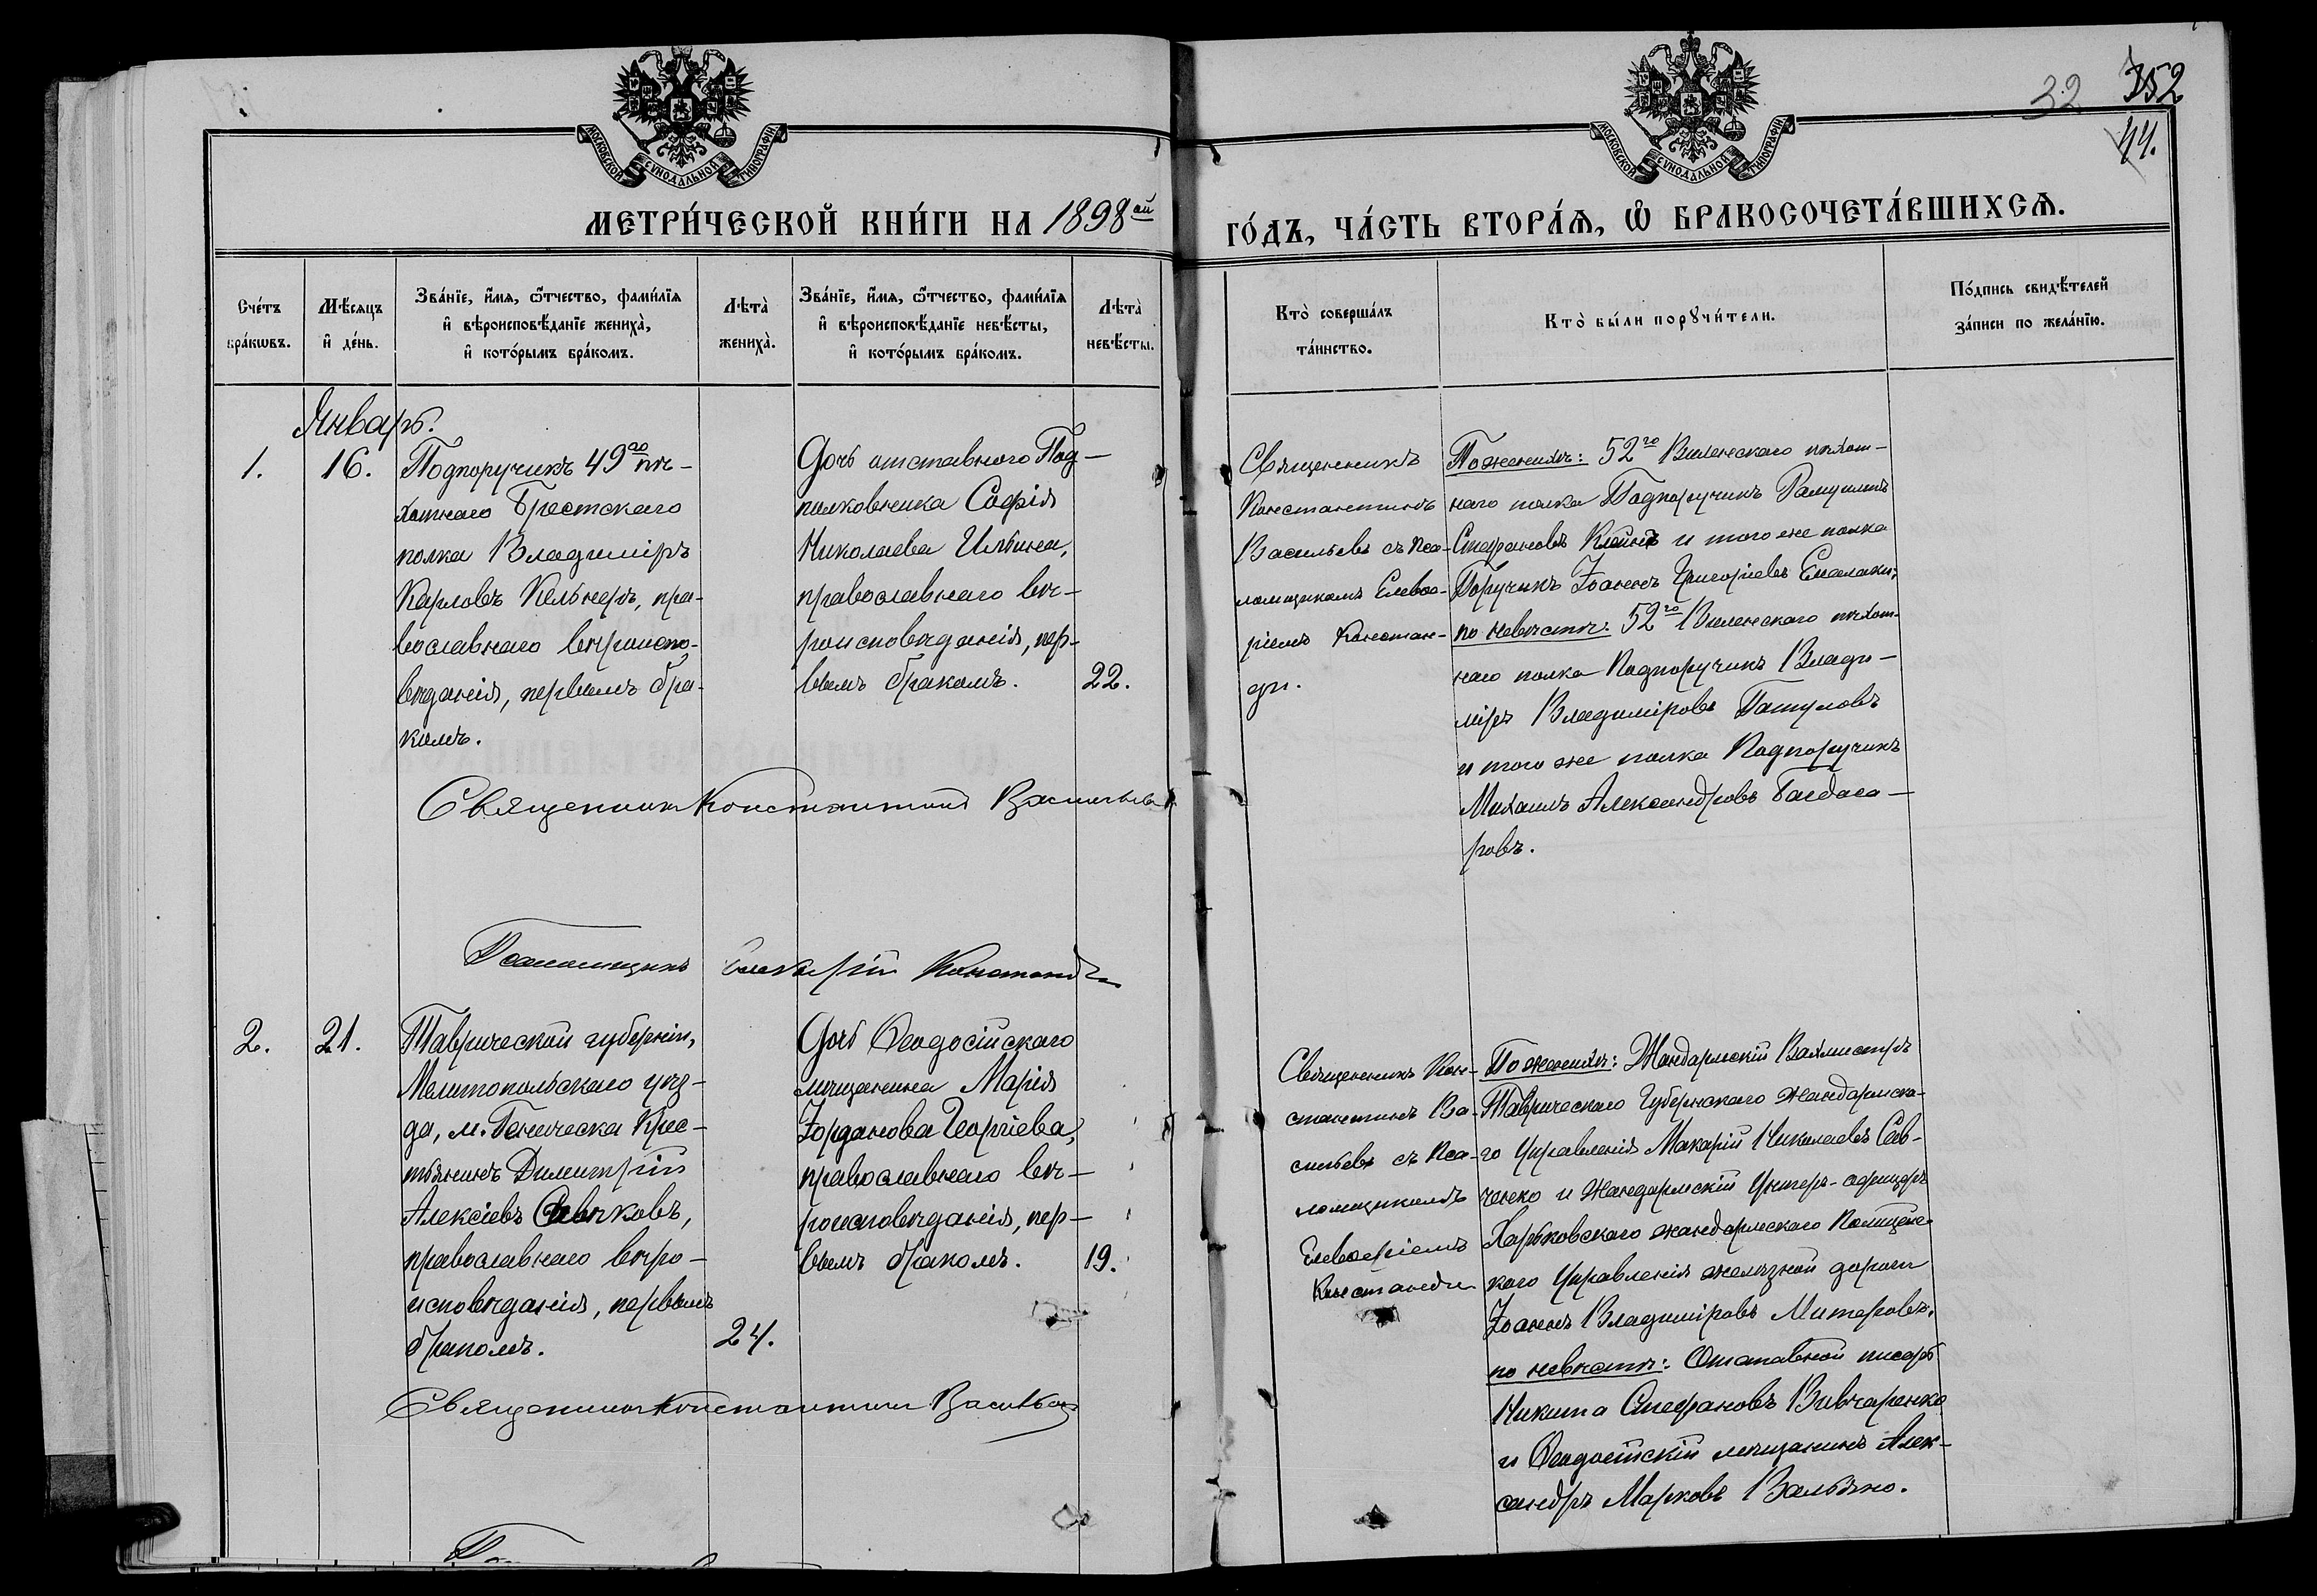 32 352
44.
МОСКОВСКОЙ СѴНОДАЛЬНОЙ ТИПОГРАФІИ
МОСКОВСКОЙ СѴНОДАЛЬНОЙ ТИПОГРАФІИ
МЕТРИ́ЧЕСКОЙ КНИ́ГИ НА 1898ой ГО́ДЪ, ЧА́СТЬ ВТОРА́Ѧ, Ѽ БРАКОСОЧЕТА́ВШИХСѦ.
Сче́тъ
бра́кѡвъ.
Мѣ́сяцъ
и҆ де́нь.
Зва́нїе, и҆́мя, ѻ҆́тчество, фами́лїя
и҆ вѣроисповѣ́данїе жениха̀,
и҆ кото́рымъ бра́комъ.
Лѣта̀
жениха̀.
Зва́нїе, и҆́мя, ѻ҆́тчество, фами́лїя
и҆ вѣроисповѣ́данїе невѣ́сты,
и҆ кото́рымъ бра́комъ.
Лѣта̀
невѣ́сты.
Кто̀ соверша́лъ
та́инство.
Кто̀ бы́ли порꙋчи́тели.
По́дпись свидѣ́телей
за́писи по жела́нїю.
Январь.
1.
16.
Подпоручикъ 49го пѣ-
хотнаго Брестскаго
полка Владиміръ
Карловъ Кельнеръ, пра-
вославнаго вѣроиспо-
вѣданія, первымъ бра-
комъ.
Дочь отставного Под-
полковника Софія
Николаева Ильина,
православнаго вѣ-
роисповѣданія, пер-
вымъ бракомъ.
22.
Священникъ
Константинъ
Васильевъ съ Пса-
ломщикомъ Елевѳе-
ріемъ Констан-
ди.
По женихѣ: 52го Виленскаго пѣхот-
наго полка Подпоручикъ
Стефановъ и того же полка
Поручикъ Іоаннъ Григоріевъ
по невѣстѣ: 52го Виленскаго пѣхот-
наго полка Подпоручикъ Влади-
міръ Владиміровъ Патуловъ
и того же полка Подпоручикъ
Михаилъ Александровъ Багдаса-
ровъ.
Священникъ Константинъ Васильевъ
Псаломщикъ Елевѳерій Констанди
2.
21.
Таврической губерніи,
Мелитопольскаго уѣз-
да, м. Геническа Крес-
тьянинъ Димитрій
Алексіевъ
православнаго вѣро-
исповѣданія, первымъ
бракомъ.
24.
Дочь Ѳеодосійскаго
мѣщанина Марія
Іорданова Георгіева,
православнаго вѣ-
роисповѣданія, пер-
вымъ бракомъ.
19.
Священникъ Кон-
стантинъ Ва-
сильевъ съ Пса-
ломщикомъ
Елевѳеріемъ
Констанди
По женихѣ: Жандармскій Вахмистръ
Таврическаго Губернскаго жандармска-
го Управленія Макарій Николаевъ Сав-
ченко и Жандармскій Унтеръ-офицеръ
Харьковскаго жандармскаго Полицейс-
каго Управленія желѣзной дороги
Іоаннъ Владиміровъ Митеровъ,
по невѣстѣ: Отставной писарь
Никита Стефановъ Вивчаренко
и Ѳеодосійскій мѣщанинъ Алек-
сандръ Марковъ Вальяно.
Священникъ Константинъ Васильевъ